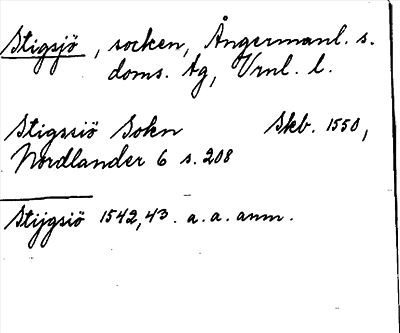 Stigsjö, socken, Ångermanl. s.
doms. tg, Vrnl. l.
Stigssiö Sokn Skb. 1550,
Nordlander 6 s. 208
Stijgsiö 1542, 43. a. a. anm.